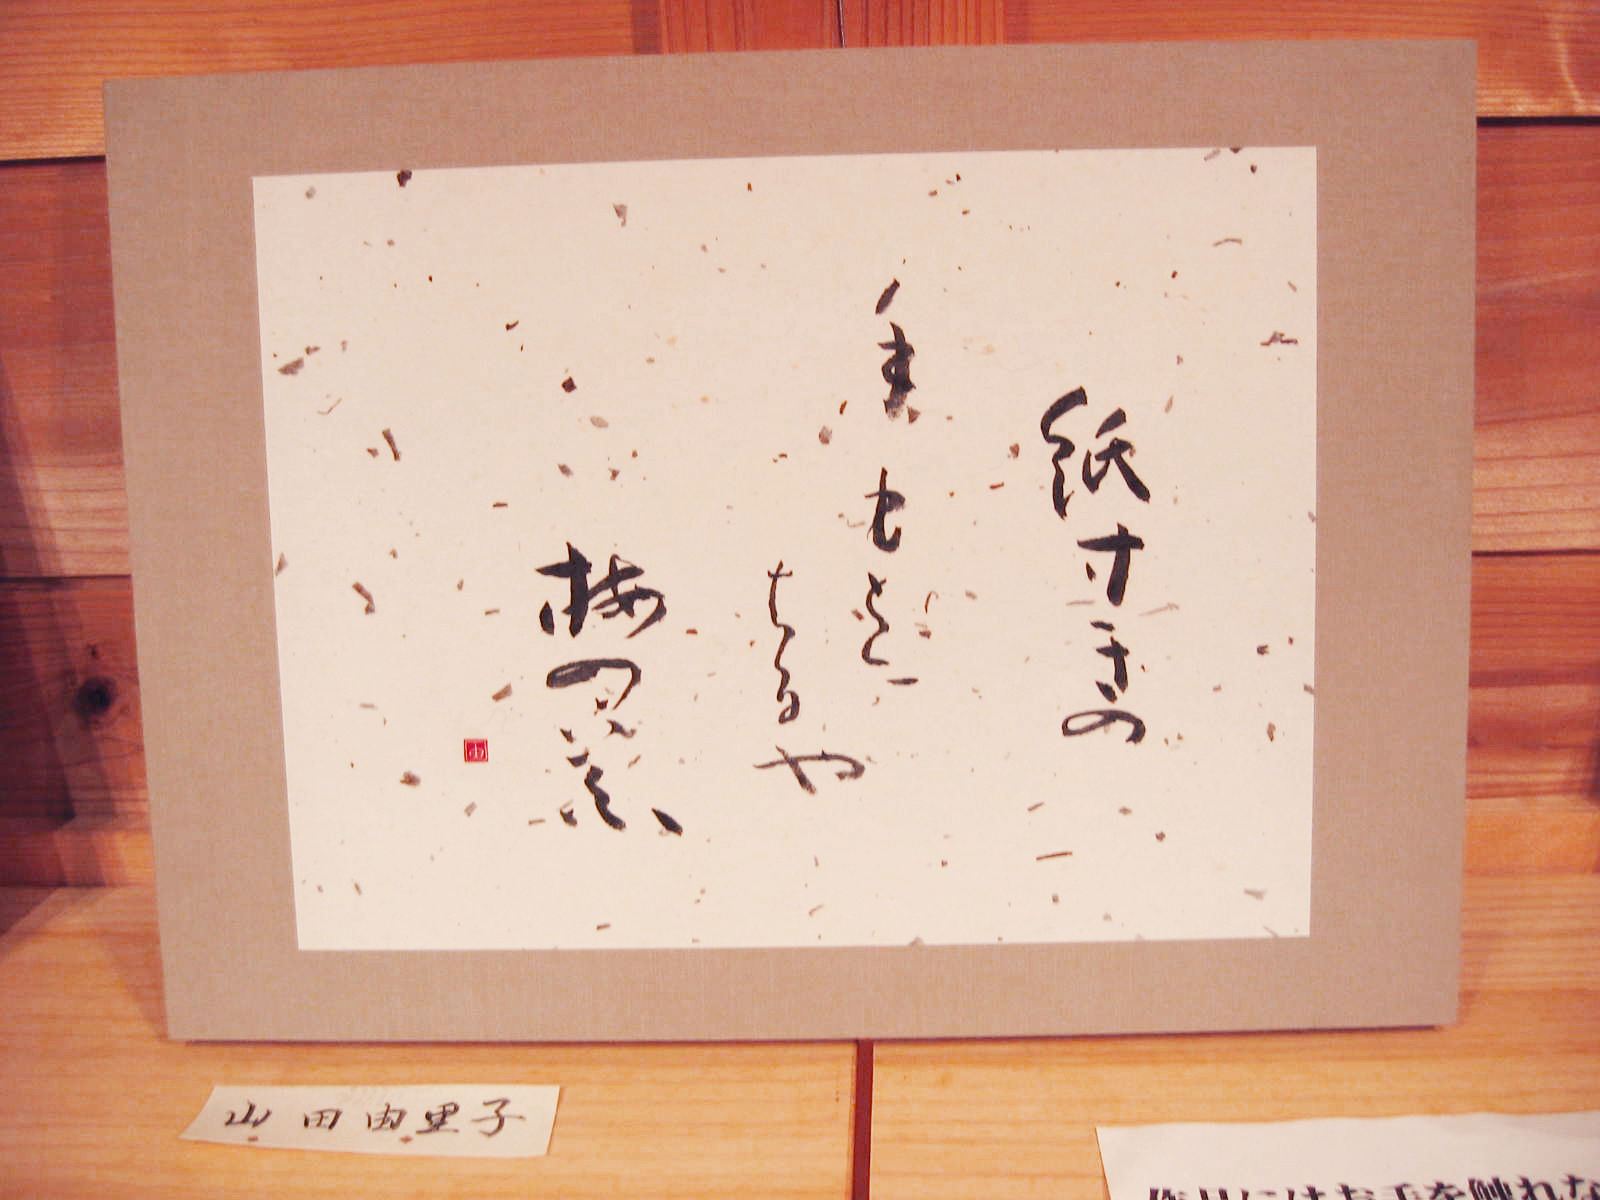 紙すきの
も
はるや
梅の
由
山田由里子
作品にはお手を触れな